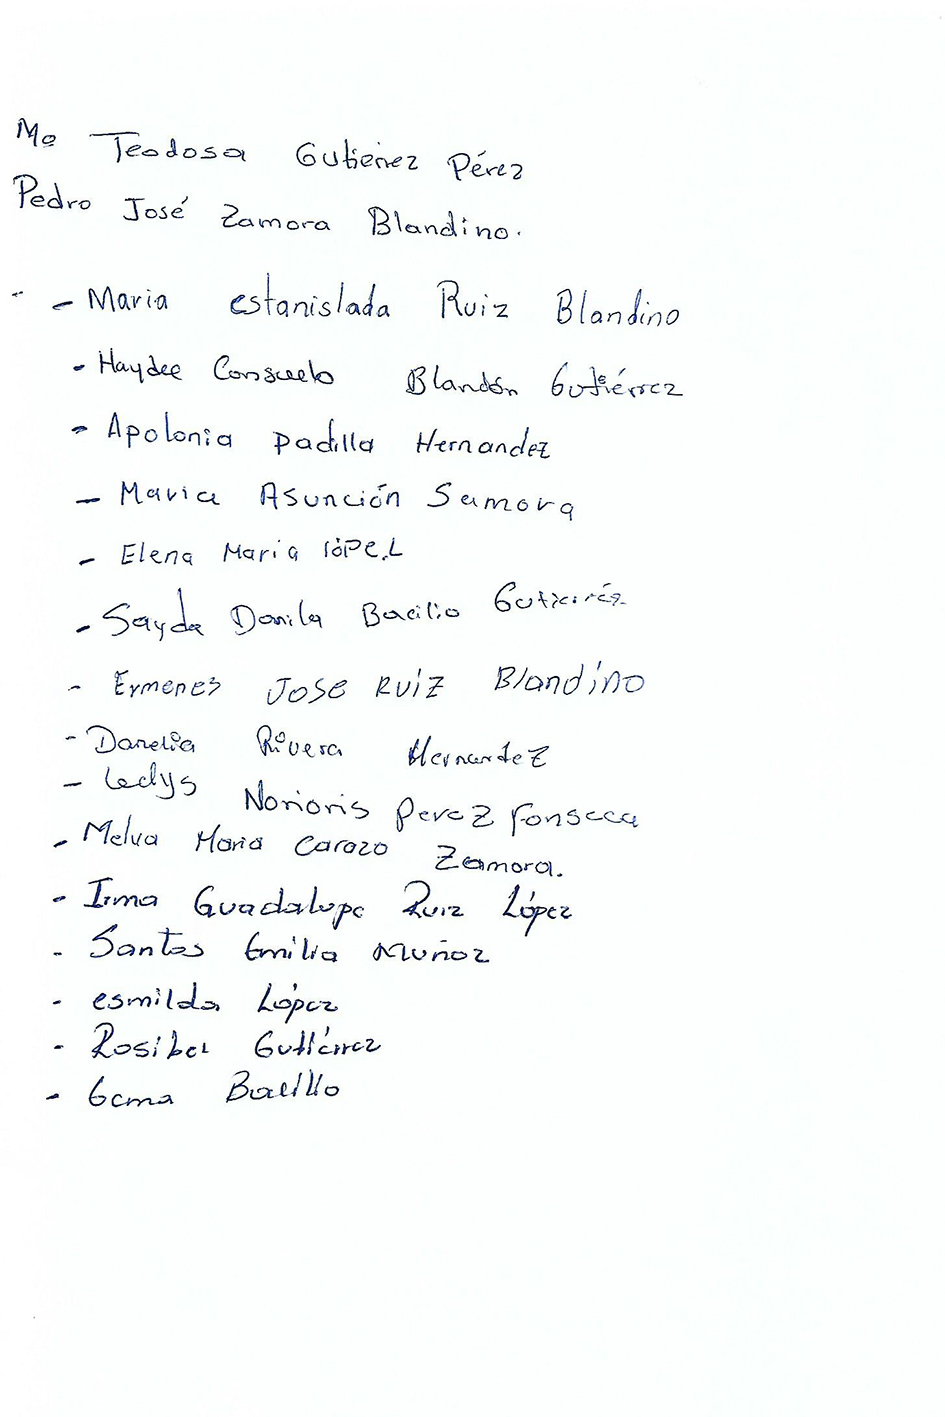 Ma Teodosa Gutierrez Pérez
Pedro José Zamora Blandino.
- Maria estanislada Ruiz Blandino
- Haydee Consuelo Blandón Gutiérrez
- Apolonia padilla Hernandez
- Maria Asunción Samora
- Elena Maria lópez
- Sayda Danila Bacilio Gutierréz
- Ermenes JOSE RUIZ Blandino
- Danelia Rivera Hernandez
- Ledys Norioris perez fonseca
- Melva Maria Carazo Zamora.
- Irma Guadalupe Ruiz López
- Santos Emilia Muñoz
- esmilda López
- Rosibel Gutiérrez
- Gema Bacilio